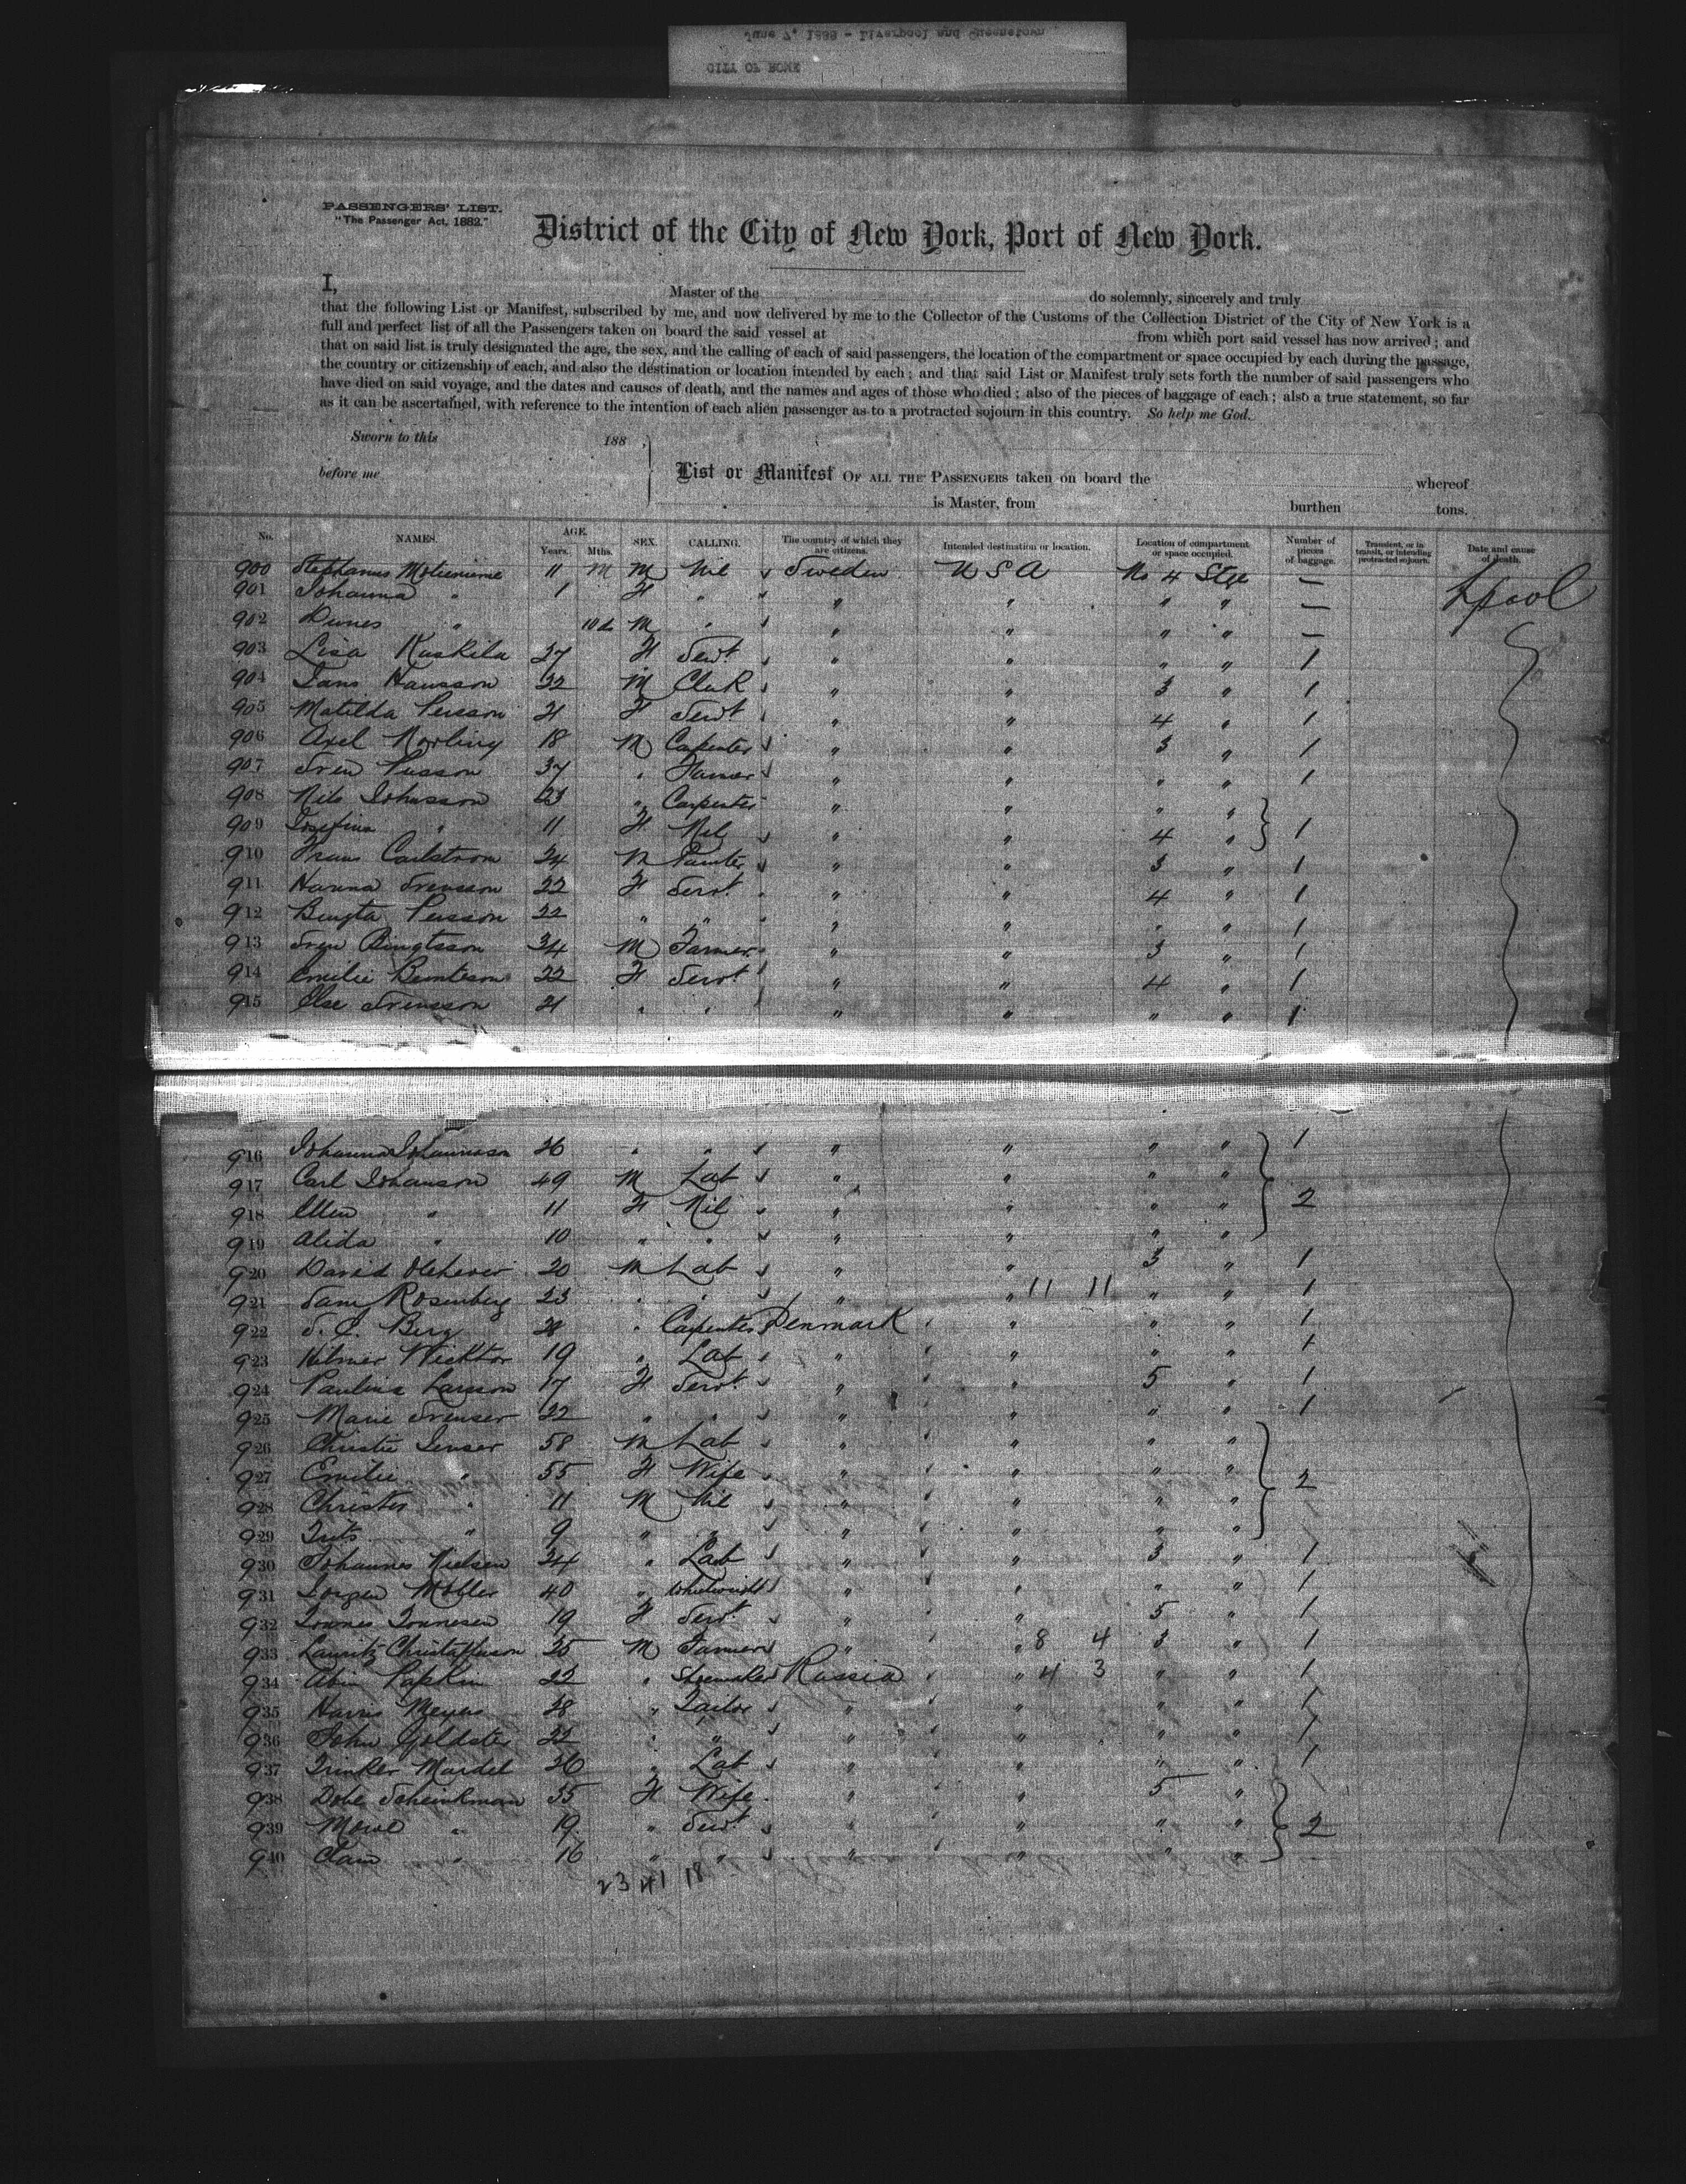 CITY OF ROME
PASSENGERS' LIST.
"The Passenger Act, 1882."
District of the City of New York, Port of New York.
I, Master of the do solemnly, sincerely and truly
that the following List or Manifest, subscribed by me, and now delivered by me to the Collector of the Customs of the Collection District of the City of New York is a
full and perfect list of all the Passengers taken on board the said vessel at from which port said vessel has now arrived; and
that on said list is truly designated the age, the sex, and the calling of each of said passengers, the location of the compartment or space occupied by each during the passage,
the country or citizenship of each, and also the destination or location intended by each; and that said List or Manifest truly sets forth the number of said passengers who
have died on said voyage, and the dates and causes of death, and the names and ages of those who died; also of the pieces of baggage of each; also a true statement, so far
as it can be ascertained, with reference to the intention of each alien passenger as to a protracted sojourn in this country. So help me God.
Sworn to this 188 ,
before me
List or Manifest OF ALL THE PASSENGERS taken on board the whereof
is Master, from burthen tons.
No. NAMES. AGE. Years. Mths. SEX. CALLING. The country of which they are citizens. Intended destination or location. Location of compartment or space occupied. Number of pieces of baggage. Transient, or in transit, or intending protracted sojourn. Date and cause of death.
900 Stephanus 11 M M Nil Sweden U S A No 4 Stge — Lpool
901 Johanna " 1 F " " " " " —
902 " M " " " " " —
903 Lisa Kaskila 27 F Servt " " " " 1
904 Hansson 22 M Clerk " " 3 " 1
905 Matilda Persson 21 F Servt " " 4 " 1
906 Axel 18 M Carpenter " " 3 " 1
907 Sven Persson 37 " Farmer " " " " 1
908 Nils Johnsson 23 " Carpenter " " " "
909 Josefina " 11 F Nil " " 4 " 1
910 Frans Carlstrom 24 M Painter " " 3 " 1
911 Hanna Svensson 22 F Servt " " 4 " 1
912 Bengta Persson 22 " " " " " " 1
913 Sven Bengtsson 34 M Farmer " " 3 " 1
914 Emilie 22 F Servt " " 4 " 1
915 Else Svensson 21 " " " " " " 1
916 Johanna 26 " " " " " " 1
917 Carl Johanson 49 M Lab " " " "
918 Ellen " 11 F Nil " " " " 2
919 Alida " 10 " " " " " "
920 David 20 M Lab " " 3 " 1
921 Sam Rosenberg 23 " " " " 11 11 " " 1
922 S. C. Berg 28 " Carpenter Denmark " " " 1
923 Hilmer 19 " Lab " " " " 1
924 Paulina Larsson 17 F Servt " " 5 " 1
925 Marie 22 " " " " " " 1
926 Christie 58 M Lab " " " "
927 Emilie " 55 F Wife " " " " 2
928 Christen " 11 M Nil " " " "
929 " 9 " " " " " "
930 Johannes Nielsen 24 " Lab " " 3 " 1
931 Jorgen Moller 40 " Wheelwright " " " " 1
932 19 F Servt " " 5 " 1
933 Lauritz 25 M Farmer " " 8 4 3 " 1
934 22 " Shoemaker Russia " 4 3 " " 1
935 Harris Meyers 28 " Tailor " " " " 1
936 John 22 " " " " " " 1
937 26 " Lab " " " " 1
938 Dobe Scheinkmann 55 F Wife " " 5 "
939 " 19 " Servt " " " " 2
940 " 16 " " " " " "
23 41 18